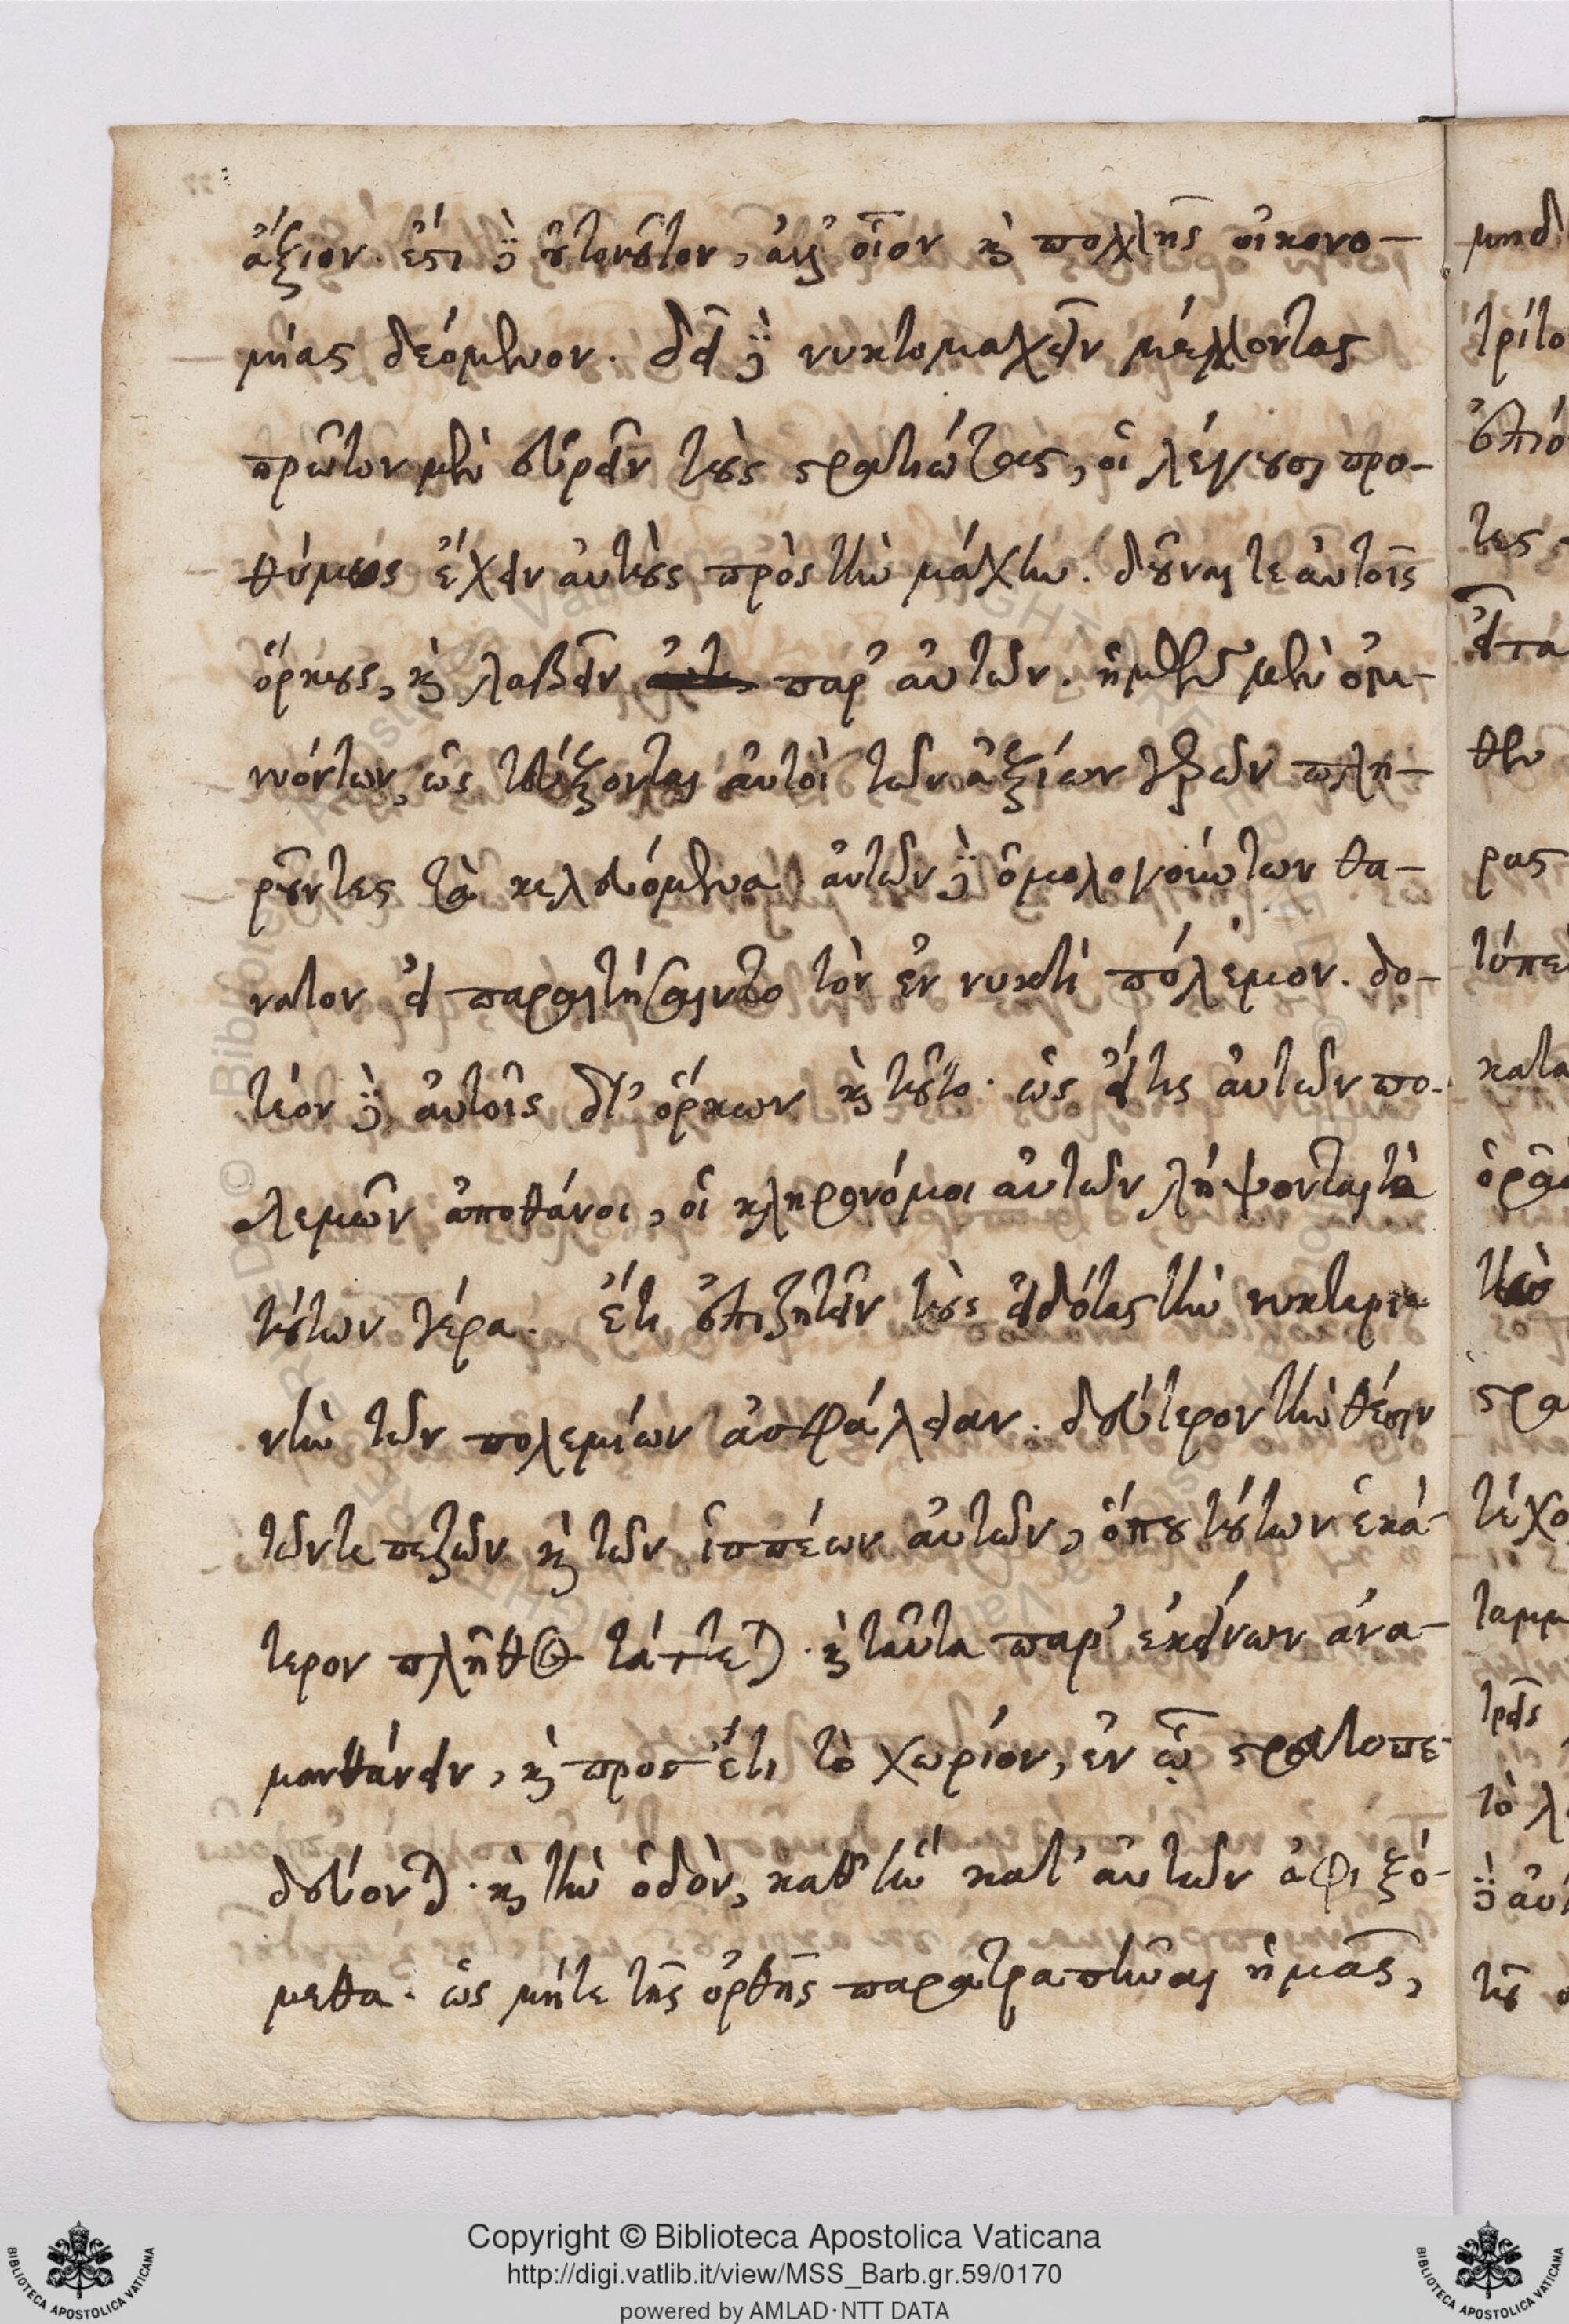 ἄξιον. ἔστι δὲ οὐ τοιοῦτον, ἀλλ' οἷον καὶ πολλῆς οἰκονο-
μίας δεόμενον. δεῖ δὲ νυκτομαχεῖν μέλλοντας
πρῶτον μὲν εὑρεῖν τοὺς στρατιώτας, οἳ λέγουσι προ-
θύμως ἔχειν αὐτοὺς πρὸς τὴν μάχην. δοῦναι τε αὐτοῖς
ὅρκους, καὶ λαβεῖν παρ' αὐτῶν. ἡμῶν μὲν ὀμ-
νυόντων, ὡς τεύξονται αὐτοὶ τῶν ἀξίων γερῶν πλη-
ροῦντες τὰ κελευόμενα. αὐτῶν δὲ ὁμολογούντων θα-
νατον εἰ παραιτήσαιντο τὸν ἐν νυκτὶ πόλεμον. δο-
τέον δὲ αὐτοῖς δι' ὅρκων καὶ τοῦτο· ὡς εἴ τις αὐτῶν πο-
λεμῶν ἀποθάνοι, οἱ κληρονόμοι αὐτῶν λήψονται τὰ
τούτων γέρα. ἔτι ἐπιζητεῖν τοὺς εἰδότας τὴν νυκτερι-
νὴν τῶν πολεμίων ἀσφάλειαν. δεύτερον τὴν θέσιν
τῶν τε πεζῶν καὶ τῶν ἱππέων αὐτῶν, ὅπου τούτων ἑκά-
τερον πλῆθος τάττεται. καὶ ταῦτα παρ' ἐκείνων ἀνα-
μανθάνειν, καὶ προσέτι τὸ χωρίον, ἐν ᾧ στρατοπε-
δεύονται. καὶ τὴν ὁδὸν, καθ' ἣν κατ' αὐτῶν ἀφιξό-
μεθα. ὡς μήτε τῆς ὀρθῆς παρατραπῆναι ἡμᾶς,
Copyright © Biblioteca Apostolica Vaticana
http://digi.vatlib.it/view/MSS_Barb.gr.59/0170
powered by AMLAD·NTT DATA
BIBLIOTECA APOSTOLICA VATICANA
BIBLIOTECA APOSTOLICA VATICANA